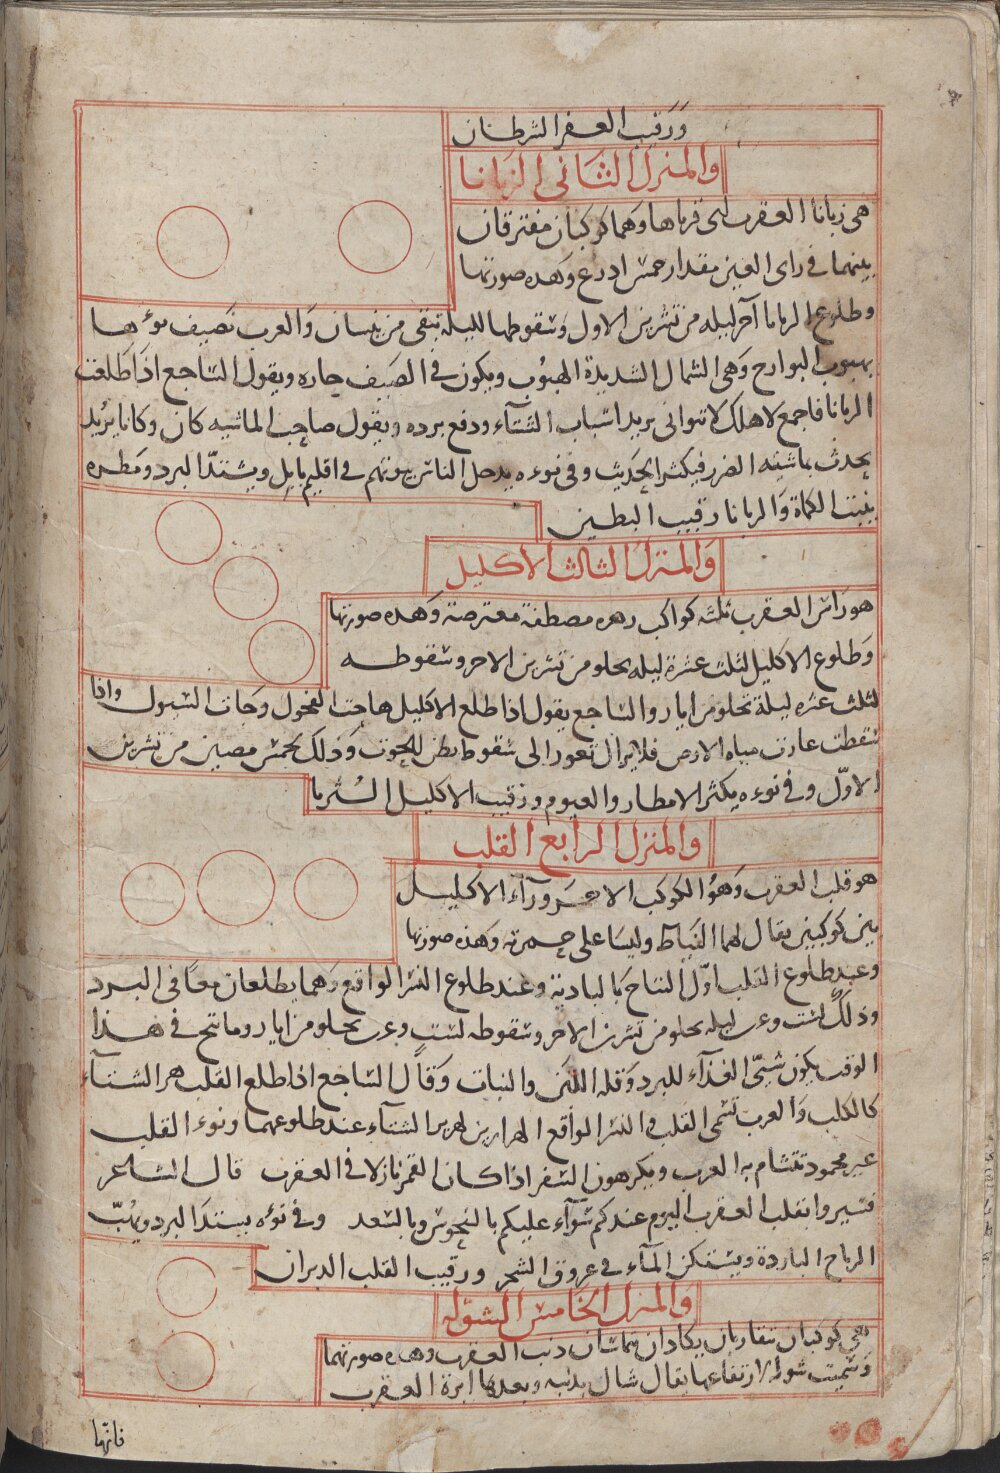 ورقيب الغفر الشرطان
والمنزل الثانى الزبانا
هى زبانا العقرب اى قرناها وهما كوكبان مفترقان
بينهما فى راى العين مقدار خمس اذرع وهذه صورتها
وطلوع الزبانا آخر ليله من تشرين الاول وسقوطها لليلة تبقى من نيسان والعرب تصيف نوءها
بهبوب البوارح وهى الشمال الشديدة الهبوب ويكون فى الصيف حاره ويقول الساجع اذا طلعت
الزبانا فاجمع لاهلك لا توانى يريد اسباب الشتاء ودفع برده ويقول صاحب الماشيه كان وكانا يريد
يحدث بماشيته الضرر فيكثر الحديث وفى نوءه يدخل الناس بيوتهم فى اقليم بابل ويشتد البرد ومطره
ينبت الكماة والزبانا رقيب البطين
والمنزل الثالث الاكليل
هو راس العقرب ثلثه كواكب زهره مصطفة معترضة وهذه صورتها
وطلوع الاكليل لثلث عشرة ليله يخلو من تشرين الاخر وسقوطه
لثلث عشره ليلة تخلو من ايار والساجع يقول اذا طلع الاكليل هاجت الفحول وخاف السيول واذا
سقطت غارت مياه الارض فلا يزال تغور الى سقوط بطن الحوت وذلك لخمس مضين من تشرين
الاول وفى نوءه يكثر الامطار والغيوم ورقيب الاكليل الثريا
والمنزل الرابع القلب
هو قلب العقرب وهو الكوكب الاحمر ورآء الاكليل
بين كوكبين يقال لهما النياط وليسا على حمرته وهذه صورتها
وعند طلوع القلب اول النتاج بالبادية وعند طلوع النسر الواقع وهما يطلعان معا فى البرد
وذلك لست وعشرين ليله يخلو من تشرين الاخر وسقوطه لست وعشرين يخلو من ايار وما نتج فى هذا
الوقت يكون سيئ الغذآء للبرد وقله اللبن والنبات وقال الساجع اذا طلع القلب هر الشتآء
كالكلب والعرب تسمى القلب والنسر الواقع الهرارين لهرير الشتآء عند طلوعهما ونوء القلب
غير محمود تتشام به العرب ويكرهون السفر اذا كان القمر نازلا فى العقرب قال الشاعر
فسيروا بقلب العقرب اليوم عندكم سوآء عليكم بالنحوس وبالسعد وفى نوءه يشتد البرد ويهب
الرياح الباردة ويستكن المآء فى عروق الشجر ورقيب القلب الدبران
والمنزل الخامس الشوله
هى كوكبان متقاربان يكادان يتماسان ذنب العقرب وهذه صورتهما
وسميت شوله لارتفاعها يقال شال بذنبه وبعدها ابرة العقرب